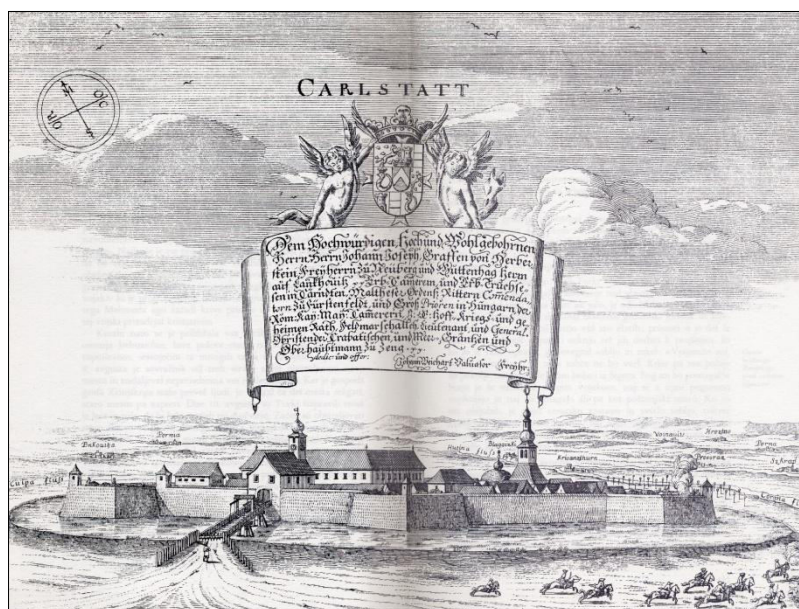 CARLSTATT
Dem Hochwürdigen, Hoch und Wohlgebohrnen
Herrn Herrn Johann Joseph, Graffen von Herber-
stein Freyherrn zu Neuberg und Guttenhag Herrn
auf Lankhowitz Erb-Camerern, und Erb-Truchse-
sen in Cärndten, Malthesser Ordens Rittern Comenda-
torn zu Fürstenfeldt, und Groß Prioren in Hungarn, der
Röm: Kay: May: Camerern, Hoff: Kriegs- und ge-
heimen Rath, Feldmarschallen Lieutenant und General
Obristen der Crabatischen, und Meer-Gräntzen und
Oberhaubtmann zu Zeng
dedic: und offer: Johann Weichart Valuasor Freyhr:
Culpa fluss
Dubouitz
Huima fluss
Krisanthurn
Vamouitz
Perna